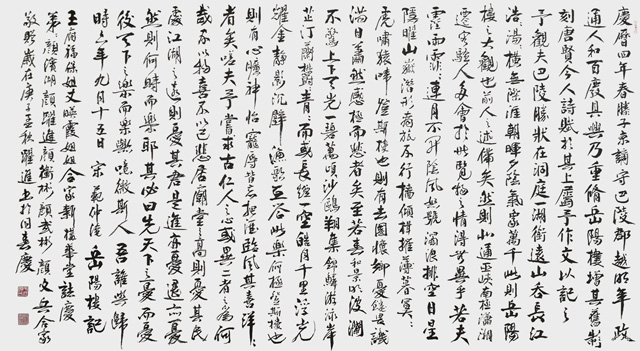 慶曆四年春滕子京謫守巴陵郡越明年政
通人和百廢具興乃重脩岳陽樓增其舊制
刻唐賢今人詩賦於其上屬予作文以記之
予觀夫巴陵勝狀在洞庭一湖銜遠山吞長江
浩浩湯湯橫無際涯朝暉夕陰氣象萬千此則岳陽
樓之大觀也前人之述備矣然則北通巫峽南極瀟湘
遷客騷人多會於此覽物之情得無異乎若夫
霪雨霏霏連月不開陰風怒號濁浪排空日星
隱曜山嶽潛形商旅不行檣傾楫摧薄暮冥冥
虎嘯猿啼登斯樓也則有去國懷鄉憂讒畏譏
滿目蕭然感極而悲者矣至若春和景明波瀾
不驚上下天光一碧萬頃沙鷗翔集錦鱗游泳岸
芷汀蘭郁郁青青而或長煙一空皓月千里浮光
耀金靜影沉璧漁歌互答此樂何極登斯樓也
則有心曠神怡寵辱皆忘把酒臨風其喜洋洋
者矣嗟夫予嘗求古仁人之心或異二者之為何
哉不以物喜不以己悲居廟堂之高則憂其民
處江湖之遠則憂其君是進亦憂退亦憂
然則何時而樂耶其必曰先天下之憂而憂
後天下之樂而樂噫微斯人吾誰與歸
時六年九月十五日宋范仲淹岳陽樓記
王府福保姐丈暎霞姐姐合家新樓華堂誌慶
弟顔漢湖顔躍進顔衡彬顔武彬顔文兵合家
敬賀歲在庚子孟秋躍進書於慶